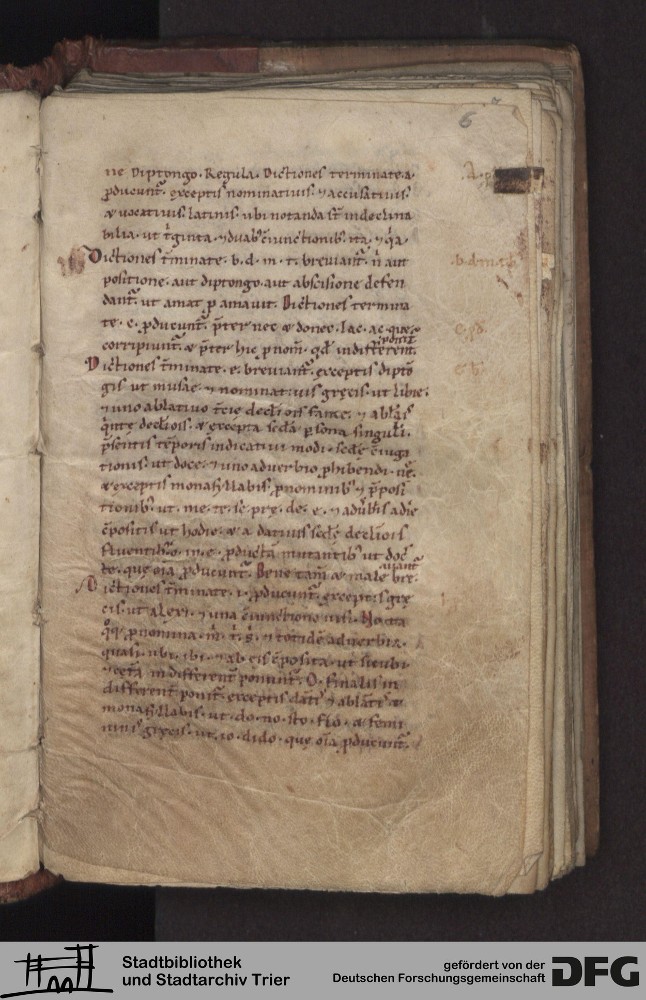 6
ne Diptongo. Regula. Dictiones terminate. a.
ꝓducunt̄. exceptis nominatiuis. ⁊ accusatiuis.
& uocatiuis latinis. ubi notanda st̄ indeclina
bilia. ut t̓ginta. ⁊ duab; c̄iunctionib;. ita. ⁊ q̓a.
Dictiones t̄minate. b. d. m. t. breuiant̄. n̄ aut
positione. aut diptongo. aut abscisione defen
dant̄. ut amat ꝓ amauit. Dictiones termina
te. c. ꝓducunt̄. p̄ter nec & donec. lac. ac. que
corripiunt̄. & p̄ter hic ꝓnom̄. qd̄ indifferent̄. ponit̄
Dictiones t̄minate. e. breuiant̄. exceptis dipto
gis ut musae. ⁊ nominatiuis grecis. ut libie.
⁊ uno ablatiuo t̄cie decl̄iois fame. ⁊ abl̄atis
q̓nte decl̄iois. & excepta sc̄da ꝑsona singul̄i.
p̄sentis tēporis indicatiui modi. sc̄de c̄iuga
tionis. ut doce. ⁊ uno aduerbio ꝓhibendi. ne.
& exceptis monasillabis. ꝓnominib; ⁊ p̄posi
tionib;. ut. me. te. se. pre. de. e. ⁊ adūbis adie
c̄positis ut hodie. & a datiuis sc̄de decl̄iois
fluentib;. o. in. e. ꝓductā mutantib; ut doc̄
te. que oīa ꝓducunt̄. Bene tam̄ & male bre-uiant̄
Dictiones t̄minate. i. ꝓducunt̄. exceptis gre
cis. ut alexi. ⁊ una c̄iunctione nisi. Notta
q̓q; ꝓnomina. m̓. t̓. s̓. ⁊ totidē aduerbia.
quasi. ubi. ibi. ⁊ ab eis c̄posita. ut sicubi
indifferent̄ ponunt̄. O. finalis in
different̄ ponit̄. exceptis dat̄is ⁊ ablat̄is &
monasillabis. ut. do. no. sto. flo. & femi
ninis grecis. ut. io. dido. que oīa ꝓducunt̄.
b. d. m. t. b.
e. b.
Stadtbibliothek
und Stadtarchiv Trier
gefördert von der
Deutschen Forschungsgemeinschaft
DFG